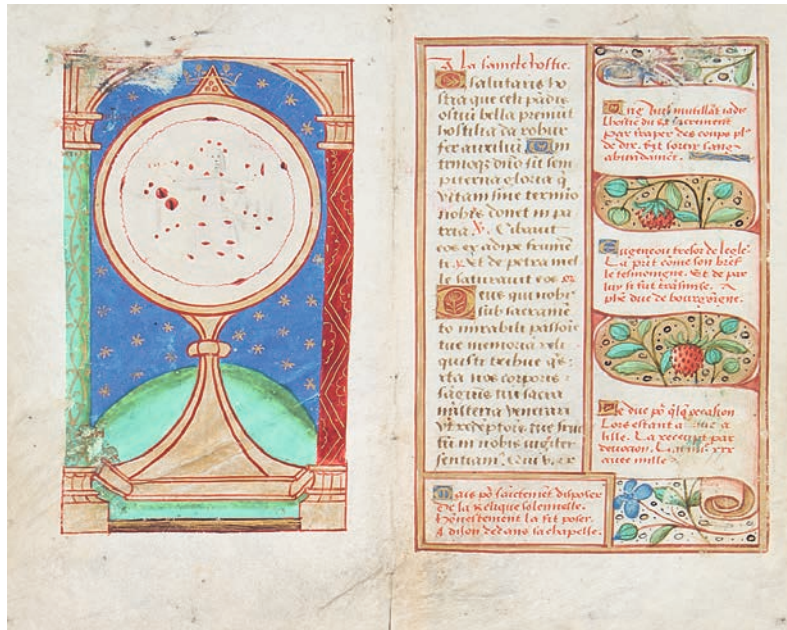 A La saincte hostie.
O salutaris ho
stia que celi pādis
ostiū bella premūt
hostilia da robur
fer auxiliū Uni
trinoq3 dn̄o sit sem
piterna gloria q̄
vitam sine termīo
nobis donet in pa
tria. V. Cibauit
eos ex adipe frumē
ti. R. Et de petra mel
le saturauit eos or
Deus qui nobis
sub sacramē
to mirabili passiōis
tue memoriā reli
quisti tribue q̄s
ita nos corporis
sāguis tui sacra
misteria venerari
vt redēptiōis tue fruc
tum in nobis iugiter
sentiam. Qui v. et
Ung Juif mutillāt iadis
Lhostie du st sacrement
par fraper des coups
de dix. Est sortir sang
abundāmēt.
Eugene ou tresor de legle
La prīt cōme son bref
le tesmoingne. Et de par
luy si fut trāsmise. A
phē duc de bourgōigne.
Le duc po quelq occasion
Lors estant a lille
lille. La receupt par
deuotion. Lan mil xxx
auec mille
Mais po sainctemēt disposer
De la Relique solennelle
Hōnestement la fit poser
A dilon dedans sa chapelle.